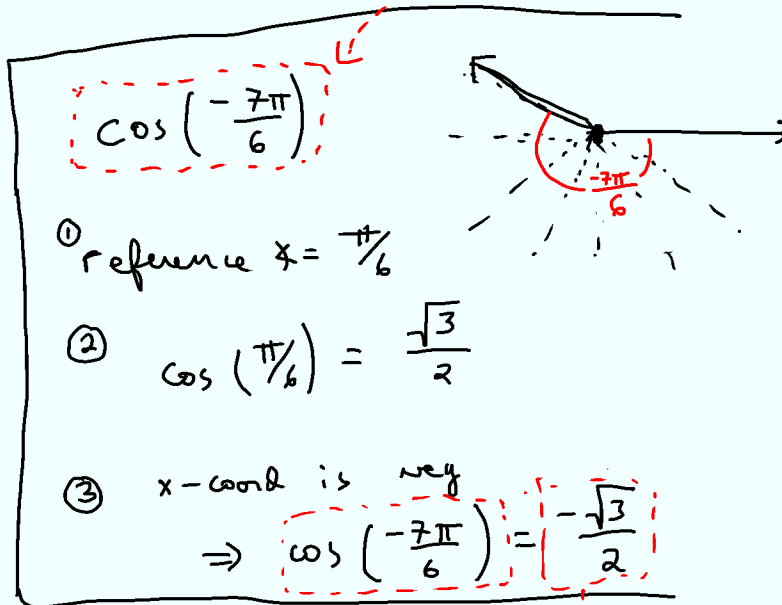 cos(-7π/6)
-7π/6
① reference ∡ = π/6
② cos(π/6) = √3/2
③ x-coord is neg
⇒ cos(-7π/6) = -√3/2